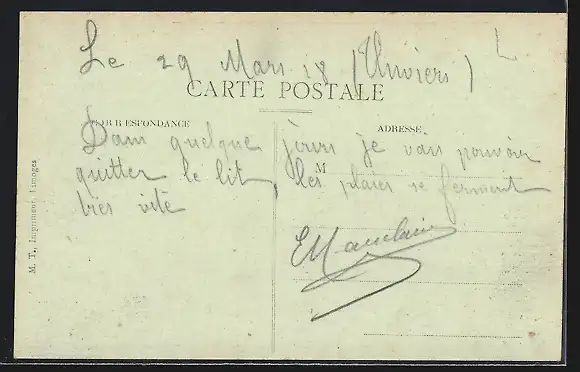 Le 29 Mars 18 (Unviers) L
CARTE POSTALE
CORRESPONDANCE
ADRESSE
Dans quelque jours je vais pouvoir
M
quitter le lit, les plaies se ferment
très vite
M. T., Imprimeur, Limoges